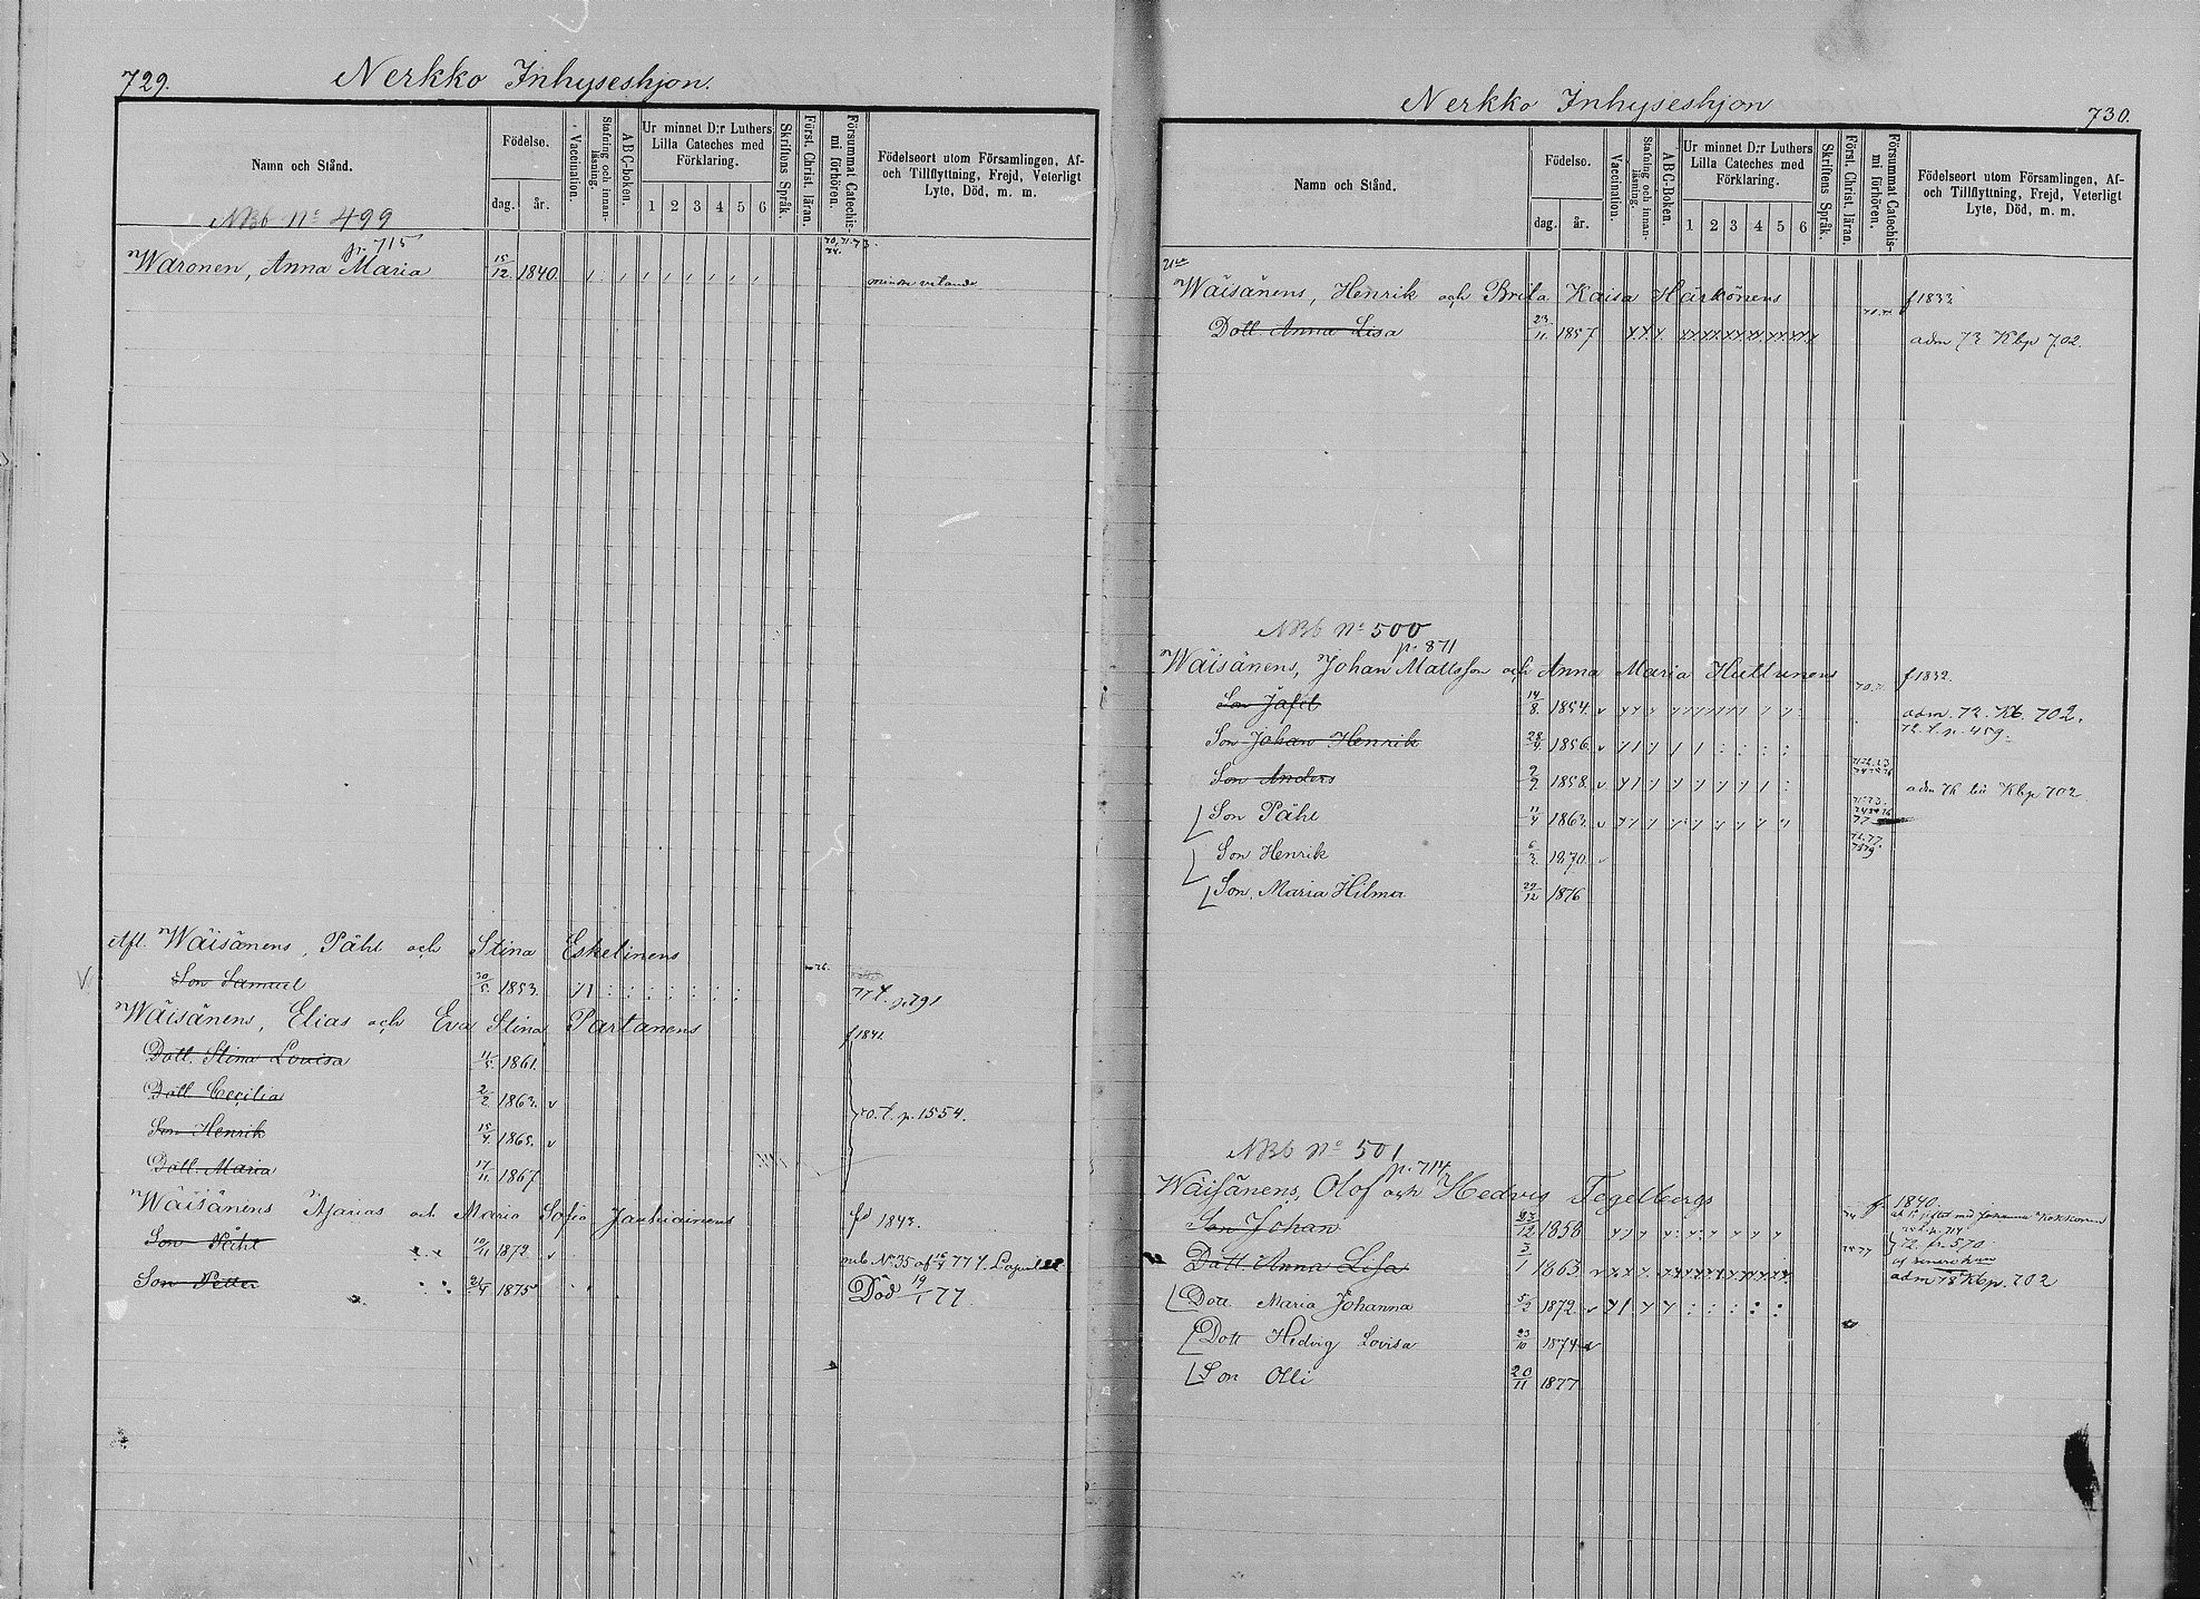 729.
Nerkko Inhyseshjon.
Namn och Stånd.
Födelse.
dag. år.
Vaccination.
Stafning och innanläsning.
ABC-boken.
Ur minnet D:r Luthers Lilla Cateches med Förklaring.
1 2 3 4 5 6
Skriftens Språk.
Först. Christ. läran.
Försummat Catechismi förhören.
Födelseort utom Församlingen, Af- och Tillflyttning, Frejd, Veterligt Lyte, Död, m. m.
NBb No 499
p. 715
Waronen, Anna Maria 15/12 1840. mindre vetande
Afl. Wäisänens, Påhl och Stina Eskelinens
Son Samuel 30/5 1853. 77 t. p. 791
Wäisänens, Elias och Eva Stina Partanens f 1841.
Dott. Stina Lovisa 11/5 1861.
Dott. Cecilia 2/2 1863. v
70. t. p. 1554.
Son Henrik 15/4 1865. v
Dott. Maria 17/11 1867
Wäisänens Asarias och Maria Sofia Jauhiainens fd 1843.
Son Påhl 10/11 1872 v
Son Petter 21/4 1875 Död 19/1 77.
Nerkko Inhyseshjon
730.
Namn och Stånd.
Födelse.
dag. år.
Vaccination.
Stafning och innanläsning.
ABC-Boken.
Ur minnet D:r Luthers Lilla Cateches med Förklaring.
1 2 3 4 5 6
Skriftens Språk.
Först. Christ. läran.
Försummat Catechismi förhören.
Födelseort utom Församlingen, Af- och Tillflyttning, Frejd, Veterligt Lyte, Död, m. m.
Wäisänens, Henrik och Brita Kaisa Härkönens f 1833
Dott. Anna Lisa 23/11 1857 adm 73 Kbp 702.
NBb No 500
p. 871
Wäisänens, Johan Mattsson och Anna Maria Huttunens f 1832.
Son Jafet 14/8. 1854. v adm. 72. Kb. 702.
Son Johan Henrik 28/4 1856. v 72. t. p. 459.
Son Anders 1858. v adm 76 Kbp 702
Son Påhl 11/4 1863. v
Son Henrik 1870. v
Son. Maria Hilma 29/12 1876
NBb No 501
p. 714
Wäisänens, Olof och Hedvig Fogelbergs f. 1840
Son Johan 23/12 1858
72. p. 570
Dott. Anna Lisa 3/1 1863. v adm 78 Kbp. 702
Dott. Maria Johanna 5/2 1872. v
Dott Hedvig Lovisa 23/10 1874 v
Son Olli 20/11 1877